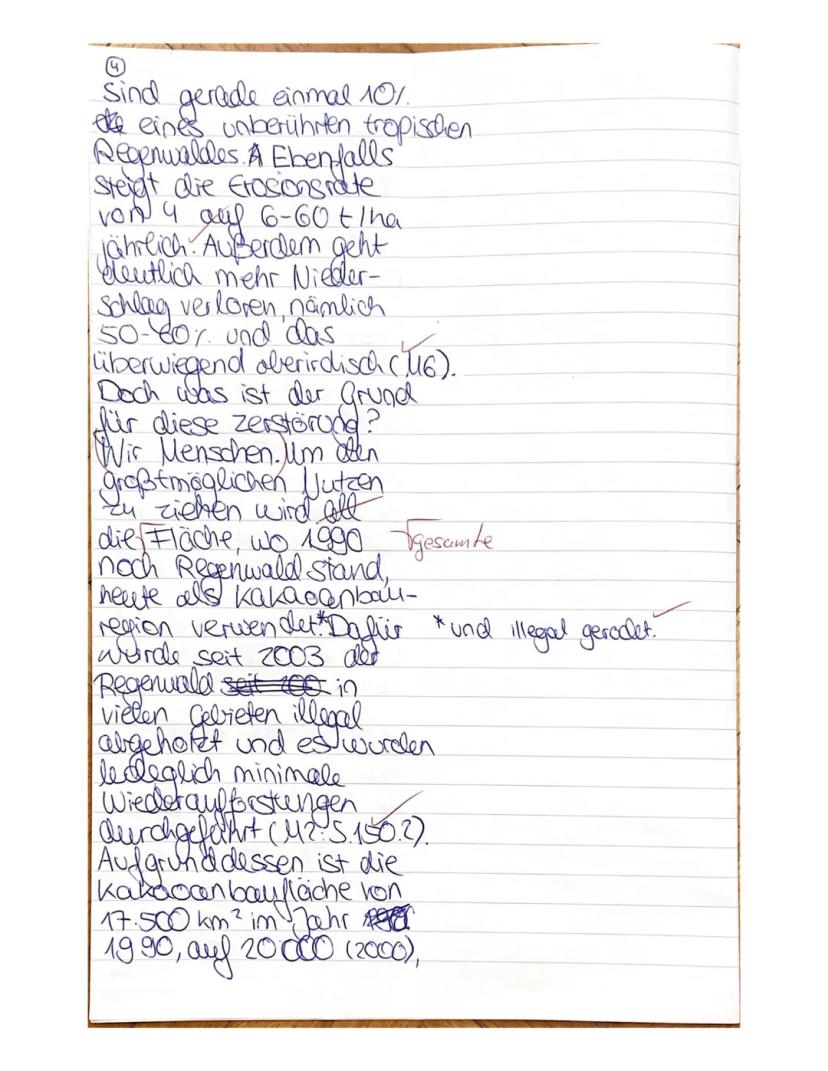 4
sind gerade einmal 10%
eines unberührten tropischen
Regenwaldes. Ebenfalls
steigt die Erosionsrate
von 4 auf 6-60 t/ha
jährlich. Außerdem geht
deutlich mehr Nieder-
schlag verloren, nämlich
50-60% und das
überwiegend oberirdisch (M6).
Doch was ist der Grund
für diese Zerstörung?
(Wir Menschen.) Um den
großtmöglichen Nutzen
zu ziehen wird all
die Fläche, wo 1990 gesamte
noch Regenwald stand,
heute als Kakaoanbau-
region verwendet.* Dafür * und illegal gerodet.
wurde seit 2003 der
Regenwald seit 200 in
vielen Gebieten illegal
abgeholzt und es wurden
lediglich minimale
Wiederaufforstungen
durchgeführt (M2: S.150.2).
Aufgrunddessen ist die
Kakaoanbaufläche von
17.500 km² im Jahr
1990, auf 20000 (2000),